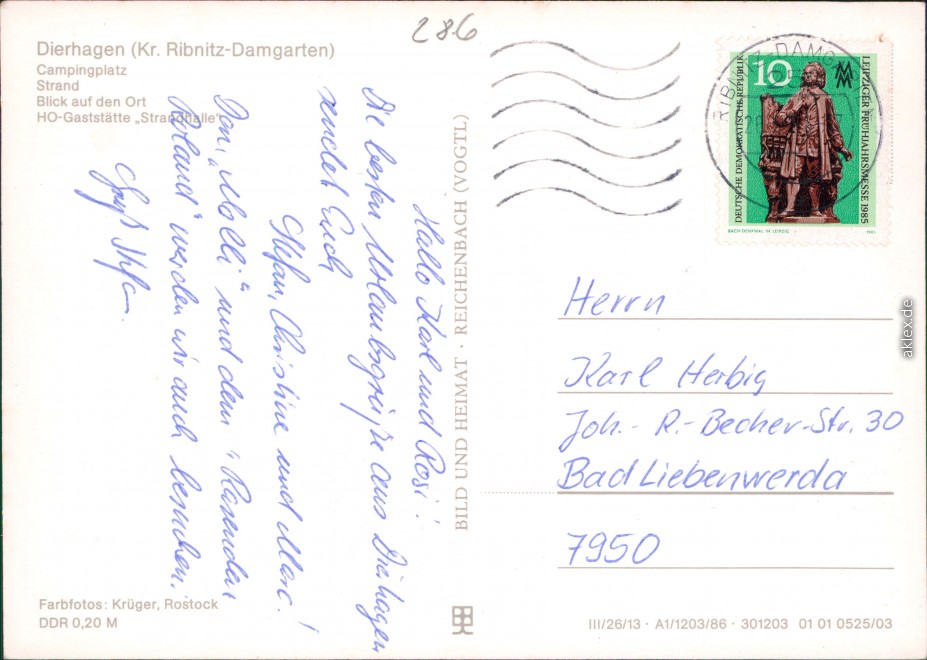 286
Dierhagen (Kr. Ribnitz-Damgarten)
Campingplatz
Strand
Blick auf den Ort
HO-Gaststätte „Strandhalle“
Hallo Karl und Rosi!
Die besten Urlaubsgrüße aus Dierhagen
sendet Euch
Stefan, Christine und Marc!
Den „Molli“ und dem „Rasenden
Roland“ werden wir auch besuchen.
Gruß
BILD UND HEIMAT · REICHENBACH (VOGTL)
RIBNITZ-DAMG
DEUTSCHE DEMOKRATISCHE REPUBLIK
10
MM
LEIPZIGER FRÜHJAHRSMESSE 1985
BACH-DENKMAL IN LEIPZIG
1985
Herrn
Karl Herbig
Joh.-R.-Becher-Str. 30
Bad Liebenwerda
7950
Farbfotos: Krüger, Rostock
DDR 0,20 M
III/26/13 · A1/1203/86 · 301203 01 01 0525/03
aklex.de